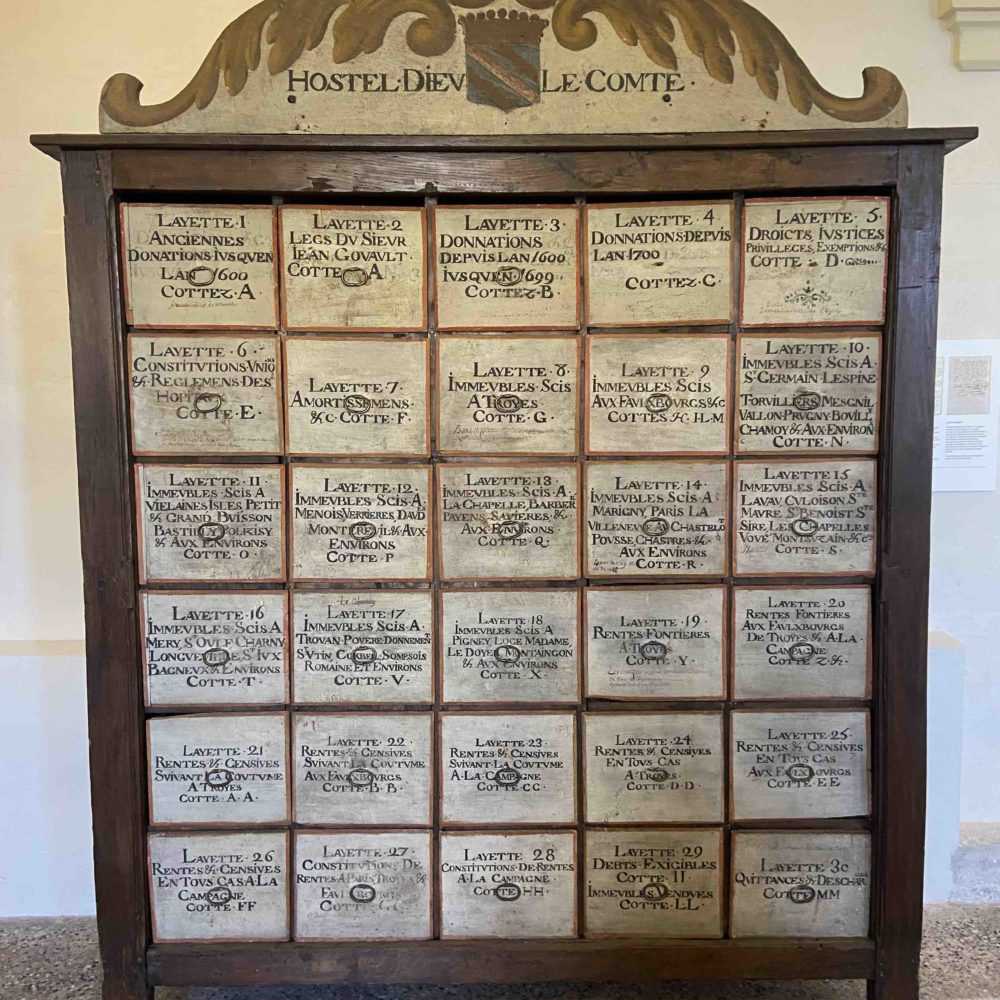 HOSTEL·DIEV LE·COMTE·
LAYETTE·1
ANCIENNES
DONATIONS IVSQVEN
LAN 1600
COTTEZ·A
LAYETTE·2
LEGS DV SIEVR
IEAN GOVAVLT·
COTTE A
LAYETTE·3
DONNATIONS
DEPVIS LAN 1600
IVSQVEN 1699
COTTEZ·B
LAYETTE 4
DONNATIONS·DEPVIS
LAN 1700
COTTEZ·C
LAYETTE·5
DROICTS, IVSTICES
PRIVILLEGES, EXEMPTIONS &c
COTTE·D
LAYETTE·6
CONSTITVTIONS·VNIONS
& REGLEMENS·DES
COTTE·E
LAYETTE·7
AMORTISSEMENS·
&c COTTE·F
LAYETTE·8
IMMEVBLES·SCIS
A TROYES
COTTE·G
LAYETTE 9
IMMEVBLES SCIS
AVX FAVXBOVRGS &c
COTTES H·I·L·M
LAYETTE·10
IMMEVBLES·SCIS·A
ST GERMAIN·LESPINE·
TORVILLIERS MESGNIL
VALLON·PRVGNY·BOVILLI
CHAMOY & AVX·ENVIRON
COTTE·N·
LAYETTE·11
IMMEVBLES·SCIS A
VIELAINES ISLES PETIT
& GRAND BVISSON
& AVX ENVIRONS
COTTE·O
LAYETTE·12
IMMEVBLES·SCIS·A
MENOIS VERRIERES DAVD
MONTREVIL & AVX·
ENVIRONS
COTTE·P
LAYETTE·13
IMMEVBLES·SCIS·A
LA·CHAPELLE, BARBER
PAYENS SAVIERES &
AVX ENVIRONS
COTTE·Q
LAYETTE·14
IMMEVBLES SCIS A
MARIGNY, PARIS LA
VILLENEVVE A CHASTELOT
POVSSE CHASTRES &
AVX ENVIRONS
COTTE·R
LAYETTE 15
IMMEVBLES SCIS·A
LAVAV, CVLOISON STE
MAVRE ST BENOIST STE
SIRE LES CHAPELLES
VOVÉ MONTSVZAIN &c
COTTE·S
LAYETTE·16
IMMEVBLES·SCIS A
MERY, ST OVLP CHARNY
BAGNEVX & ENVIRONS
COTTE·T
LAYETTE·17
IMMEVBLES·SCIS·A
TROVAN·POVERE·DONNEMEN
ST VTIN CORBEIL SOMPSOIS
ROMAINE ET ENVIRONS
COTTE·V
LAYETTE·18
IMMEVBLES SCIS A
PIGNEY, LVGE MADAME,
LE DOYER, MONTAINGON
& AVX ENVIRONS
COTTE·X
LAYETTE·19
RENTES FONTIERES
A TROYES
COTTE·Y·
LAYETTE·20
RENTES FONTIERES
AVX FAVLXBOVRGS
DE TROYES & A·LA
CAMPAGNE
COTTE·Z·&·
LAYETTE·21
RENTES & CENSIVES
SVIVANT LA COVTVME
A TROYES
COTTE·A A·
LAYETTE·22
RENTES & CENSIVES
SVIVANT LA COVTVME
AVX FAVXBOVRGS
COTTE·B B·
LAYETTE·23
RENTES & CENSIVES
SVIVANT·LA COVTVME
A·LA CAMPAGNE
COTTE·CC·
LAYETTE·24
RENTES & CENSIVES
EN TOVS CAS
A TROYES
COTTE D D
LAYETTE·25
RENTES & CENSIVES
EN TOVS CAS
AVX FAVLXBOVRGS
COTTE·EE
LAYETTE·26
RENTES & CENSIVES
EN TOVS CAS·A·LA
CAMPAGNE
COTTE·FF
LAYETTE·27
CONSTITVTIONS·DE
RENTES·A·PARIS TROYES &
COTTE
LAYETTE 28
CONSTITVTIONS·DE RENTES
A·LA CAMPAGNE
COTTE·HH·
LAYETTE·29
DEBTS EXIGIBLES
COTTE·II
IMMEVBLES VENDVES
COTTE·LL·
LAYETTE 30
QVITTANCES & DESCHAR
COTTE MM